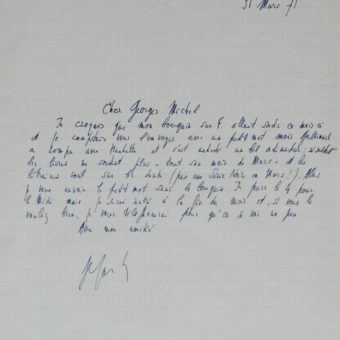 31 Mars 71
Cher Georges Michel
Je croyais que mon bouquin sur F. allait sortir ce mois-ci
et je comptais vous l'envoyer avec un petit mot mais Gallimard
a rompu avec Hachette et s'est
les livres ne sortent plus - tout son mois de Mars - et les
libraires sont sur les dents (pas une Série Noire en Mars!). Alors
je vous envoie le petit mot sans le bouquin. Je pars le 4 pour
le Midi mais je serai rentré à la fin du mois et, si vous le
voulez bien, je vous téléphonerai pour qu'on se voie un peu
Avec mon amitié